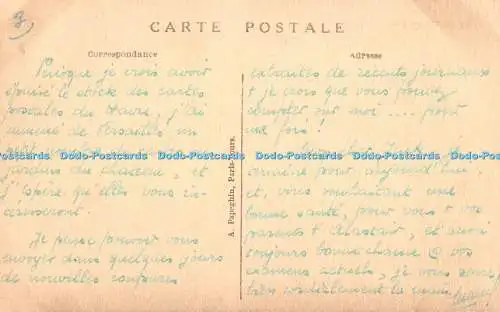 CARTE POSTALE
Correspondance
Puisque je crois avoir
épuisé le stock des cartes
postales du Havre, j'ai
amené de Versailles un
petit
jardins du château, et
j'espère qu'elles vous in-
téresseront.
Je pense pouvoir vous
envoyer dans quelques jours
de nouvelles coupures
A. Papeghin, Paris-Tours.
Adresse
extraites de récents journaux
+ je crois que vous pouvez
compter sur moi .... pour
une fois!
pour aujourd'hui,
et, vous souhaitant une
bonne santé, pour vous + vos
parents + Alastair, et aussi
toujours bonne chance @ vos
examens actuels, je vous serre
bien cordialement la main
Dodo-Postcards Dodo-Postcards Dodo-Postcards Dodo-Postcards Dodo-Postcards